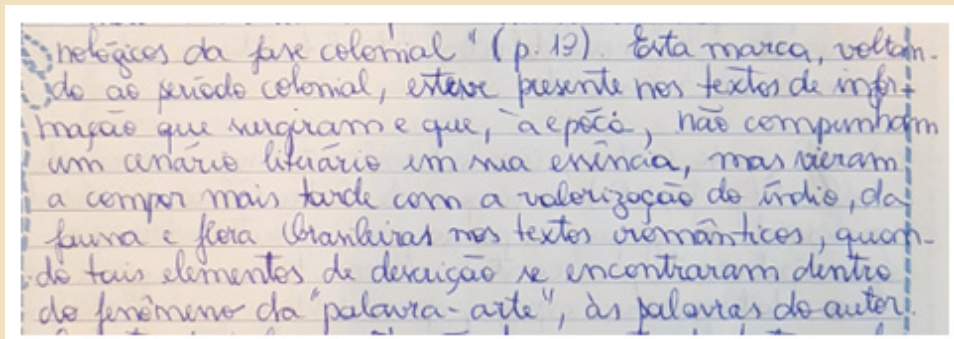 nológicos da fase colonial" (p. 19). Esta marca, voltan-
do ao período colonial, esteve presente nos textos de infor-
mação que surgiram e que, à época, não compunham
um cenário literário em sua essência, mas vieram
a compor mais tarde com a valorização do índio, da
fauna e flora brasileiras nos textos românticos, quan-
do tais elementos de descrição se encontraram dentro
do fenômeno da "palavra-arte", às palavras do autor.